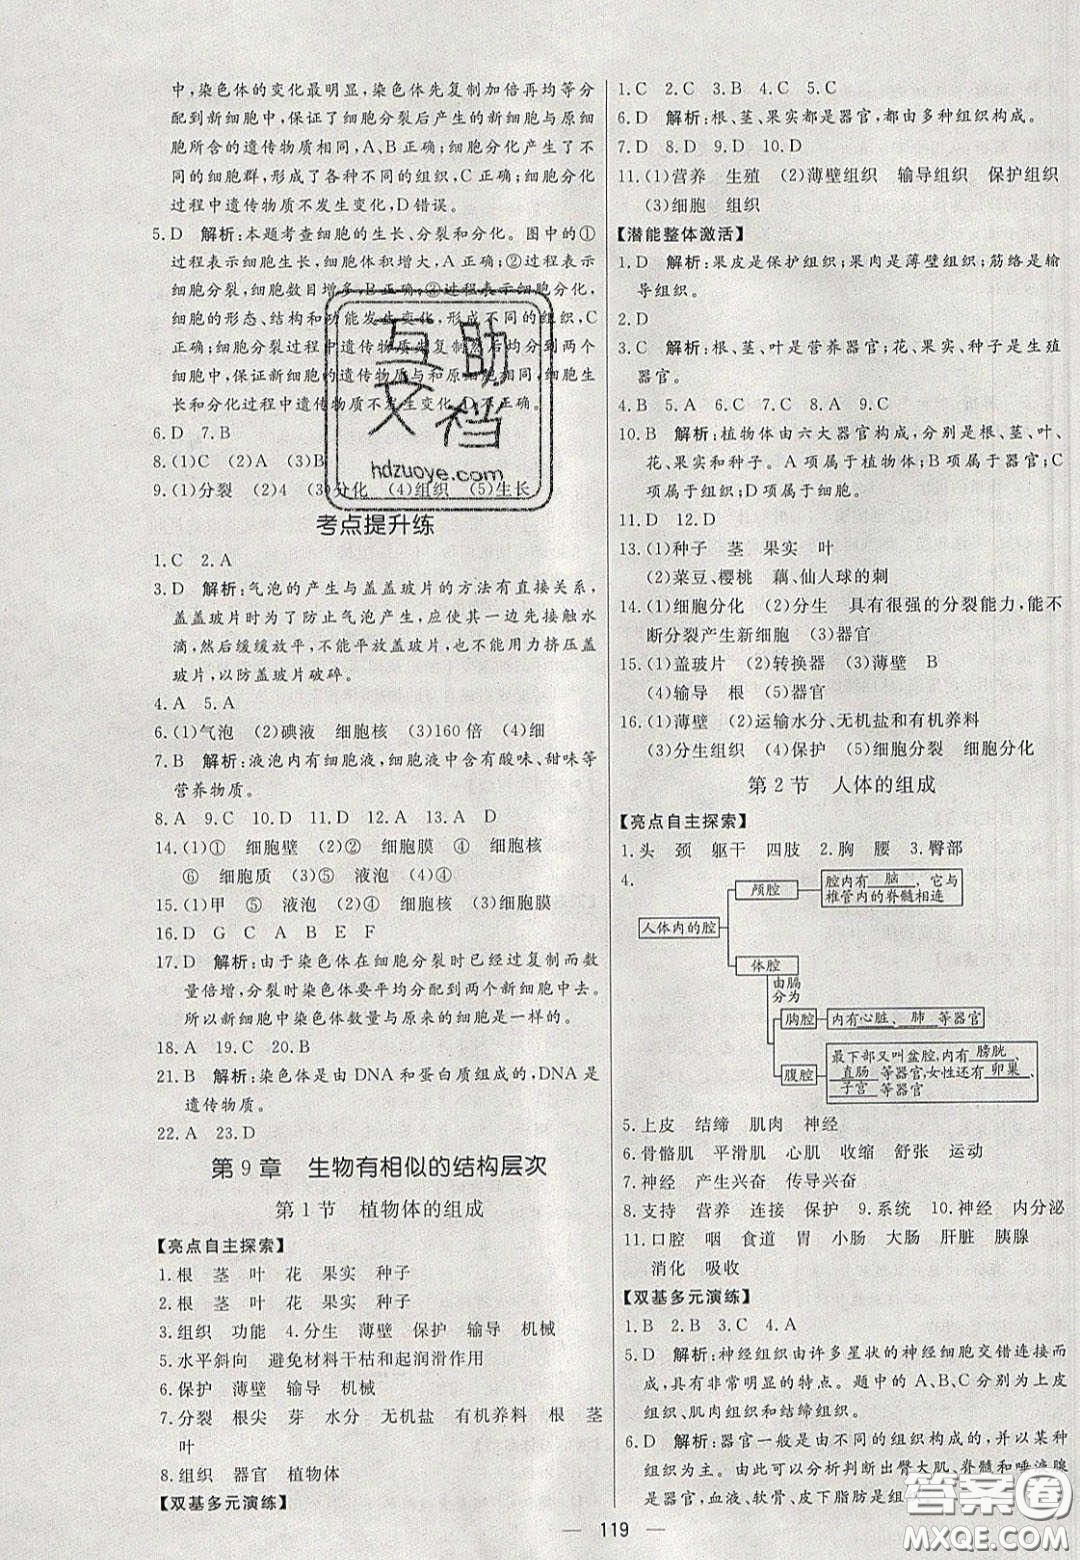 中,染色体的变化最明显,染色体先复制加倍再均等分
配到新细胞中,保证了细胞分裂后产生的新细胞与原细
胞所含的遗传物质相同,A、B正确;细胞分化产生了不
同的细胞群,形成了各种不同的组织,C正确;细胞分化
过程中遗传物质不发生变化,D错误。
5.D 解析:本题考查细胞的生长、分裂和分化。图中的①
过程表示细胞生长,细胞体积增大,A正确;②过程表示
细胞分裂,细胞数目增多,B正确;③过程表示细胞分化,
细胞的形态、结构和功能发生变化,形成不同的组织,C
正确;细胞分裂过程中遗传物质先复制然后均分到两个
细胞中,保证新细胞的遗传物质与原细胞相同,细胞生
长和分化过程中遗传物质不发生变化,D不正确。
6.D 7.B
8.(1)C (2)A (3)B
9.(1)分裂 (2)4 (3)分化 (4)组织 (5)生长
考点提升练
1.C 2.A
3.D 解析:气泡的产生与盖盖玻片的方法有直接关系,
盖盖玻片时为了防止气泡产生,应使其一边先接触水
滴,然后缓缓放平,不能平放盖玻片,也不能用力挤压盖
玻片,以防盖玻片破碎。
4.A 5.A
6.(1)气泡 (2)碘液 细胞核 (3)160倍 (4)细
7.B 解析:液泡内有细胞液,细胞液中含有酸味、甜味等
营养物质。
8.A 9.C 10.D 11.D 12.A 13.A D
14.(1)① 细胞壁 (2)② 细胞膜 ④ 细胞核
⑥ 细胞质 (3)⑤ 液泡 (4)②
15.(1)甲 ⑤ 液泡 (2)④ 细胞核 (3)细胞膜
16.D G C A B E F
17.D 解析:由于染色体在细胞分裂时已经过复制而数
量倍增,分裂时染色体要平均分配到两个新细胞中去。
所以新细胞中染色体数量与原来的细胞是一样的。
18.A 19.C 20.B
21.B 解析:染色体是由DNA和蛋白质组成的,DNA是
遗传物质。
22.A 23.D
第9章 生物有相似的结构层次
第1节 植物体的组成
【亮点自主探索】
1.根 茎 叶 花 果实 种子
2.根 茎 叶 花 果实 种子
3.组织 功能 4.分生 薄壁 保护 输导 机械
5.水平斜向 避免材料干枯和起润滑作用
6.保护 薄壁 输导 机械
7.分裂 根尖 芽 水分 无机盐 有机养料 根 茎
叶
8.组织 器官 植物体
【双基多元演练】
1.C 2.C 3.B 4.C 5.C
6.D 解析:根、茎、果实都是器官,都由多种组织构成。
7.D 8.D 9.D 10.D
11.(1)营养 生殖 (2)薄壁组织 输导组织 保护组织
(3)细胞 组织
【潜能整体激活】
1.D 解析:果皮是保护组织;果肉是薄壁组织;筋络是输
导组织。
2.D
3.C 解析:根、茎、叶是营养器官;花、果实、种子是生殖
器官。
4.B 5.A 6.C 7.C 8.A 9.C
10.B 解析:植物体由六大器官构成,分别是根、茎、叶、
花、果实和种子。A项属于植物体;B项属于器官;C
项属于组织;D项属于细胞。
11.D 12.D
13.(1)种子 茎 果实 叶
(2)菜豆、樱桃 藕、仙人球的刺
14.(1)细胞分化 (2)分生 具有很强的分裂能力,能不
断分裂产生新细胞 (3)器官
15.(1)盖玻片 (2)转换器 (3)薄壁 B
(4)输导 根 (5)器官
16.(1)薄壁 (2)运输水分、无机盐和有机养料
(3)分生组织 (4)保护 (5)细胞分裂 细胞分化
第2节 人体的组成
【亮点自主探索】
1.头 颈 躯干 四肢 2.胸 腰 3.臀部
4.
颅腔
腔内有 脑 ,它与
椎管内的脊髓相连
人体内的腔
体腔
由膈
分为
胸腔
内有心脏、肺 等器官
腹腔
最下部又叫盆腔,内有 膀胱、
直肠 等器官,女性还有 卵巢、
子宫 等器官
5.上皮 结缔 肌肉 神经
6.骨骼肌 平滑肌 心肌 收缩 舒张 运动
7.神经 产生兴奋 传导兴奋
8.支持 营养 连接 保护 9.系统 10.神经 内分泌
11.口腔 咽 食道 胃 小肠 大肠 肝脏 胰腺
消化 吸收
【双基多元演练】
1.B 2.B 3.C 4.A
5.D 解析:神经组织由许多星状的神经细胞交错连接而
成,具有非常明显的特点。题中的A、B、C分别为上皮
组织、肌肉组织和结缔组织。
6.D 解析:器官一般是由不同的组织构成的,并以某种
组织为主。由此可以分析判断出臀大肌、脊髓和唾液腺
是器官,血液、软骨、皮下脂肪
119
互助
文档
hdzuoye.com
答案圈
MXQE.COM